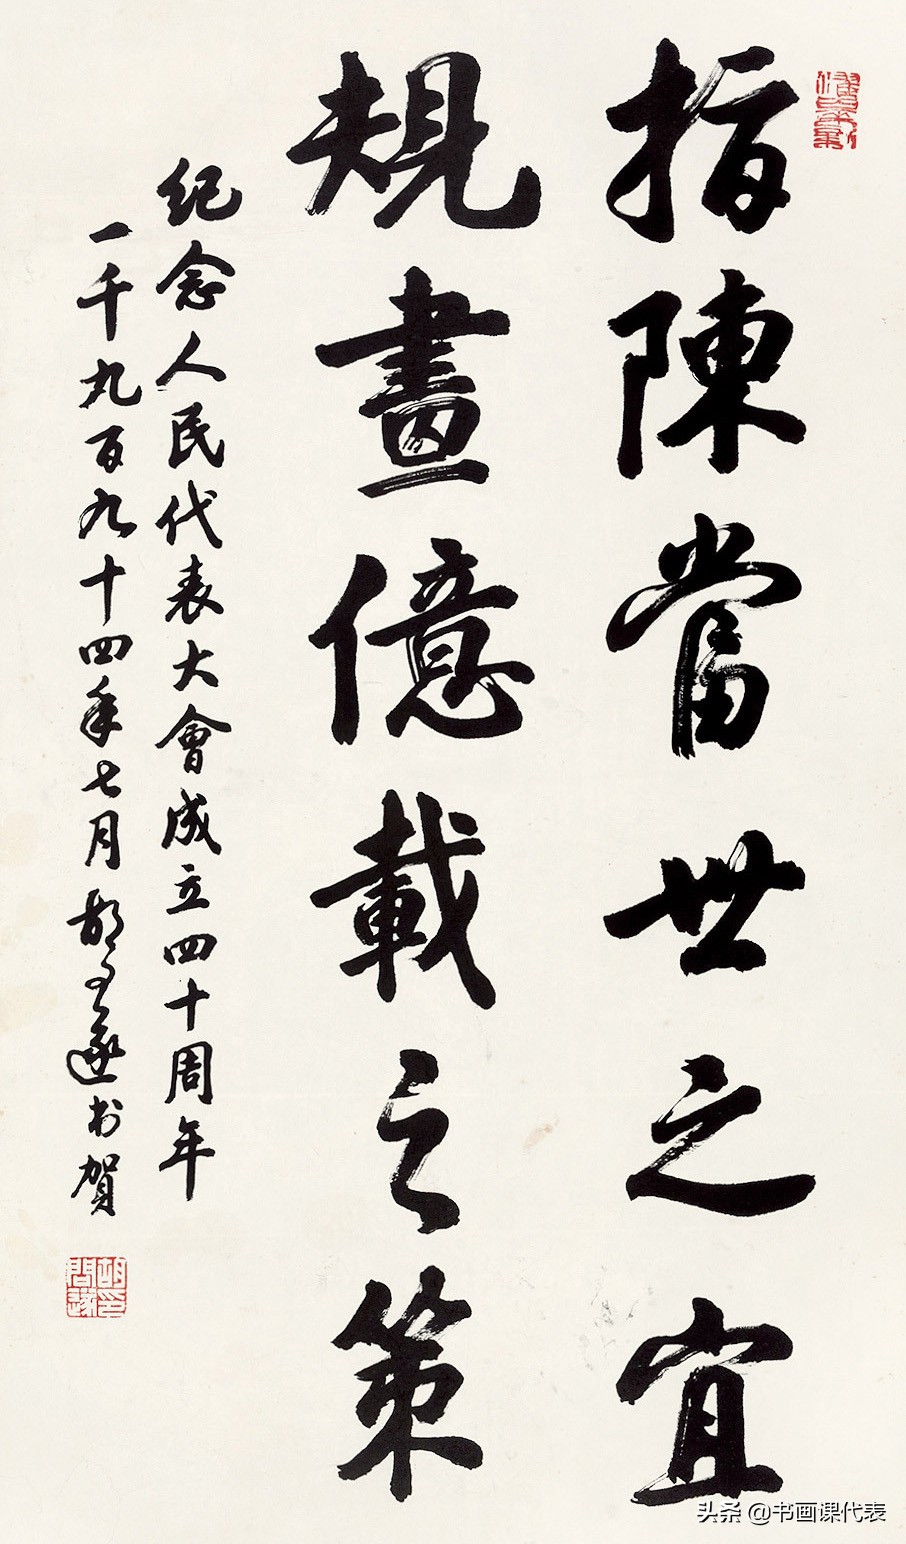 指陳當世之宜
規畫億載之策
紀念人民代表大會成立四十周年
一千九百九十四年七月胡問遂書賀
胡問遂印
头条 @书画课代表